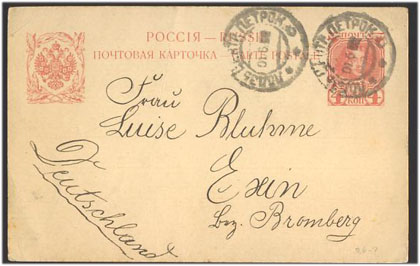 РОССІЯ — RUSSIE
ПОЧТОВАЯ КАРТОЧКА — CARTE POSTALE
4 КОП 4
Frau
Luise Bluhme
Exin
bez. Bromberg
Deutschland